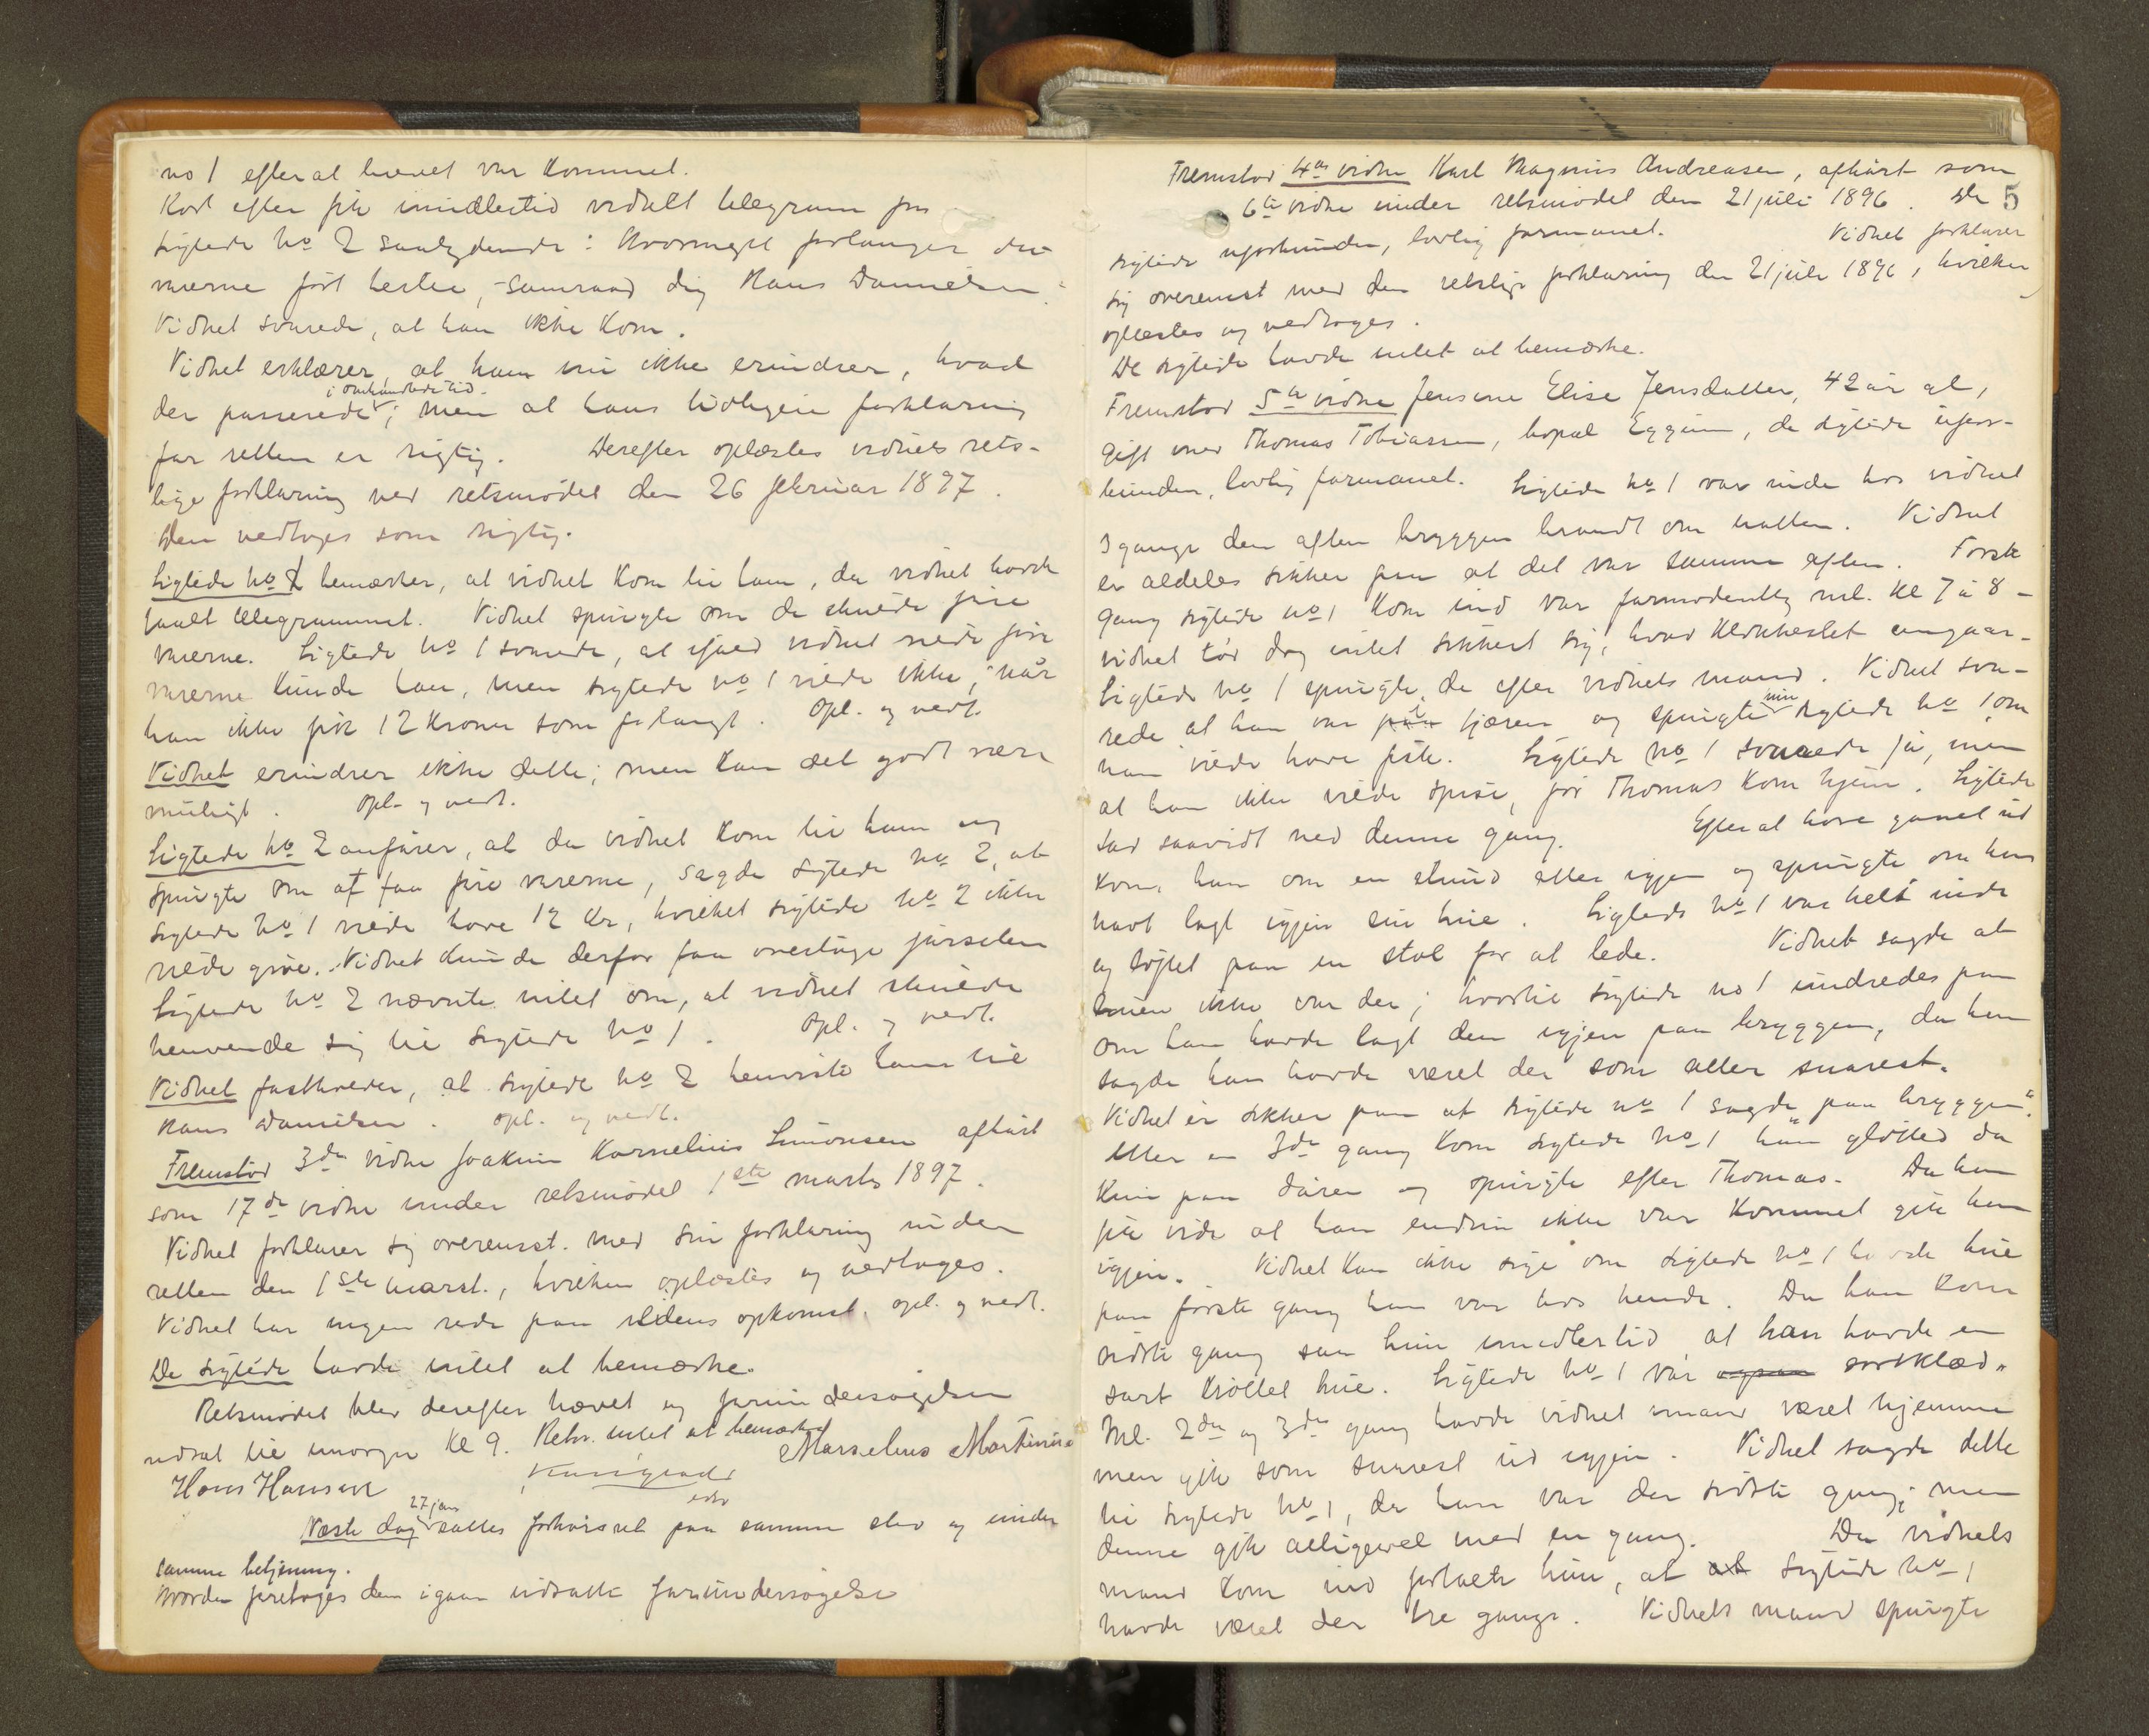 no 1 efter at brevet var kommet.
Kort efter fik imidlertid vidnet telegram fra
sigtede No 2 saalydende: Hvormeget forlanger du
varerne ført herhen, samraad dig Hans Danielsen
Vidnet svarede, at han ikke kom.
Vidnet erklærer, at han nu ikke erindrer, hvad
i omhandlede tid
der passerede; men at hans tidligere forklaring
for retten er rigtig. Derefter oplæstes vidnets rets-
lige forklaring ved retsmødet den 26 februar 1897.
Den vedtoges som rigtig.
Sigtede No 1 bemærker, at vidnet kom til ham, da vidnet havde
faaet telegrammet. Vidnet spurgte om de skulde føre
varerne. Sigtede No 1 svarede, at ifald vidnet vilde føre
varerne kunde han, men sigtede No 1 vilde ikke, når
han ikke fik 12 kroner som forlangt. Opl. og vedt.
Vidnet erindrer ikke dette; men kan det godt være
muligt. Opl. og vedt.
Sigtede No 2 anfører, at da vidnet kom til ham og
spurgte om at faa føre varerne, sagde sigtede No 2, at
sigtede No 1 vilde have 12 Kr, hvilket sigtede No 2 ikke
vilde give. Vidnet kunde derfor faa overtage førselen
Sigtede No 2 nævnte intet om, at vidnet skulde
henvende sig til sigtede No 1. Opl. og vedt.
Vidnet fastholder, at sigtede No 2 henviste ham til
Hans Danielsen. Opl. og vedt.
Fremstod 3de vidne Joakim Kornelius Simonsen afhørt
som 17de vidne under retsmødet 1ste marts 1897.
Vidnet forklarer sig overensst. med sin forklaring inden
retten den 1ste marst., hvilken oplæstes og vedtoges.
Vidnet har ingen rede paa ildens opkomst. opl. og vedt.
De sigtede havde intet at bemærke.
Retsmødet blev derefter hævet og forundersøgelsen
udsat til imorgen Kl 9. Retsv. intet at bemærke
Marselius Martinius
Hans Hansen
27 jan
Næste dag sattes forhørsret paa samme sted og under
samme betjening.
Hvorda foretoges den igaar udsatte forundersøgelse
5
Fremstod 4de vidne Karl Magnus Andreasen, afhørt som
6te vidne under retsmødet den 21 juli 1896. De
sigtede uforbunden, lovlig formanet. Vidnet forklarer
sig overenst med den retslige forklaring den 21 juli 1896, hvilken
oplæstes og vedtoges.
De sigtede havde intet at bemærke.
Fremstod 5te vidne Jensine Elise Jensdatter, 42 år gl,
gift med Thomas Tobiassen, bopæl Eggum, de sigtede ufor-
bunden, lovlig formanet. Sigtede No 1 var inde hos vidnet
3 gange den aften bryggen brændt om natten. Vidnet
er aldeles sikker paa at det var samme aften. Første
gang sigtede No 1 kom ind var formodentlig ml. Kl 7 à 8 -
vidnet tør dog intet sikkert sig, hvad klokkeslet angaar.
Sigtede No 1 spurgte da efter vidnets mand. Vidnet sva-
rede at han var i fjæren og spurgte sigtede No 1 om
han vilde have fisk. Sigtede No 1 svarede ja, men
at han ikke vilde spise, før Thomas kom hjem. Sigtede
sad saavidt ned denne gang. Efter at have gaaet ud
kom han om en stund atter igjen og spurgte om han
havt lagt igjen sin hue. Sigtede No 1 var helt inde
og løftet paa en stol for at lede. Vidnet sagde at
huen ikke var der; hvortil sigtede no 1 undredes paa
om han havde lagt den igjen paa bryggen, da han
sagde han havde været der som aller snarest.
Vidnet er sikker paa at sigtede No 1 sagde "paa bryggen".
Atter en 3de gang kom sigtede No 1 han gløtted da
kun paa døren og spurgte efter Thomas. Da han
fik vide at han endnu ikke var kommet gik han
igjen. Vidnet kan ikke sige om sigtede No 1 havde hue
paa første gang han var hos hende. Da han kom
sidste gang saa hun imidlertid at han havde en
sort krøllet hue. Sigtede No 1 var sortklæd.
Ml. 2den og 3de gang havde vidnet mand været hjemme
men gik som snarest ud igjen. Vidnet sagde dette
til sigtede No 1, da han var der sidste gang; men
denne gik alligevel med en gang. Da vidnets
mand kom ind fortalte hun, at sigtede No 1
havde været der tre gange. Vidnets mand spurgte